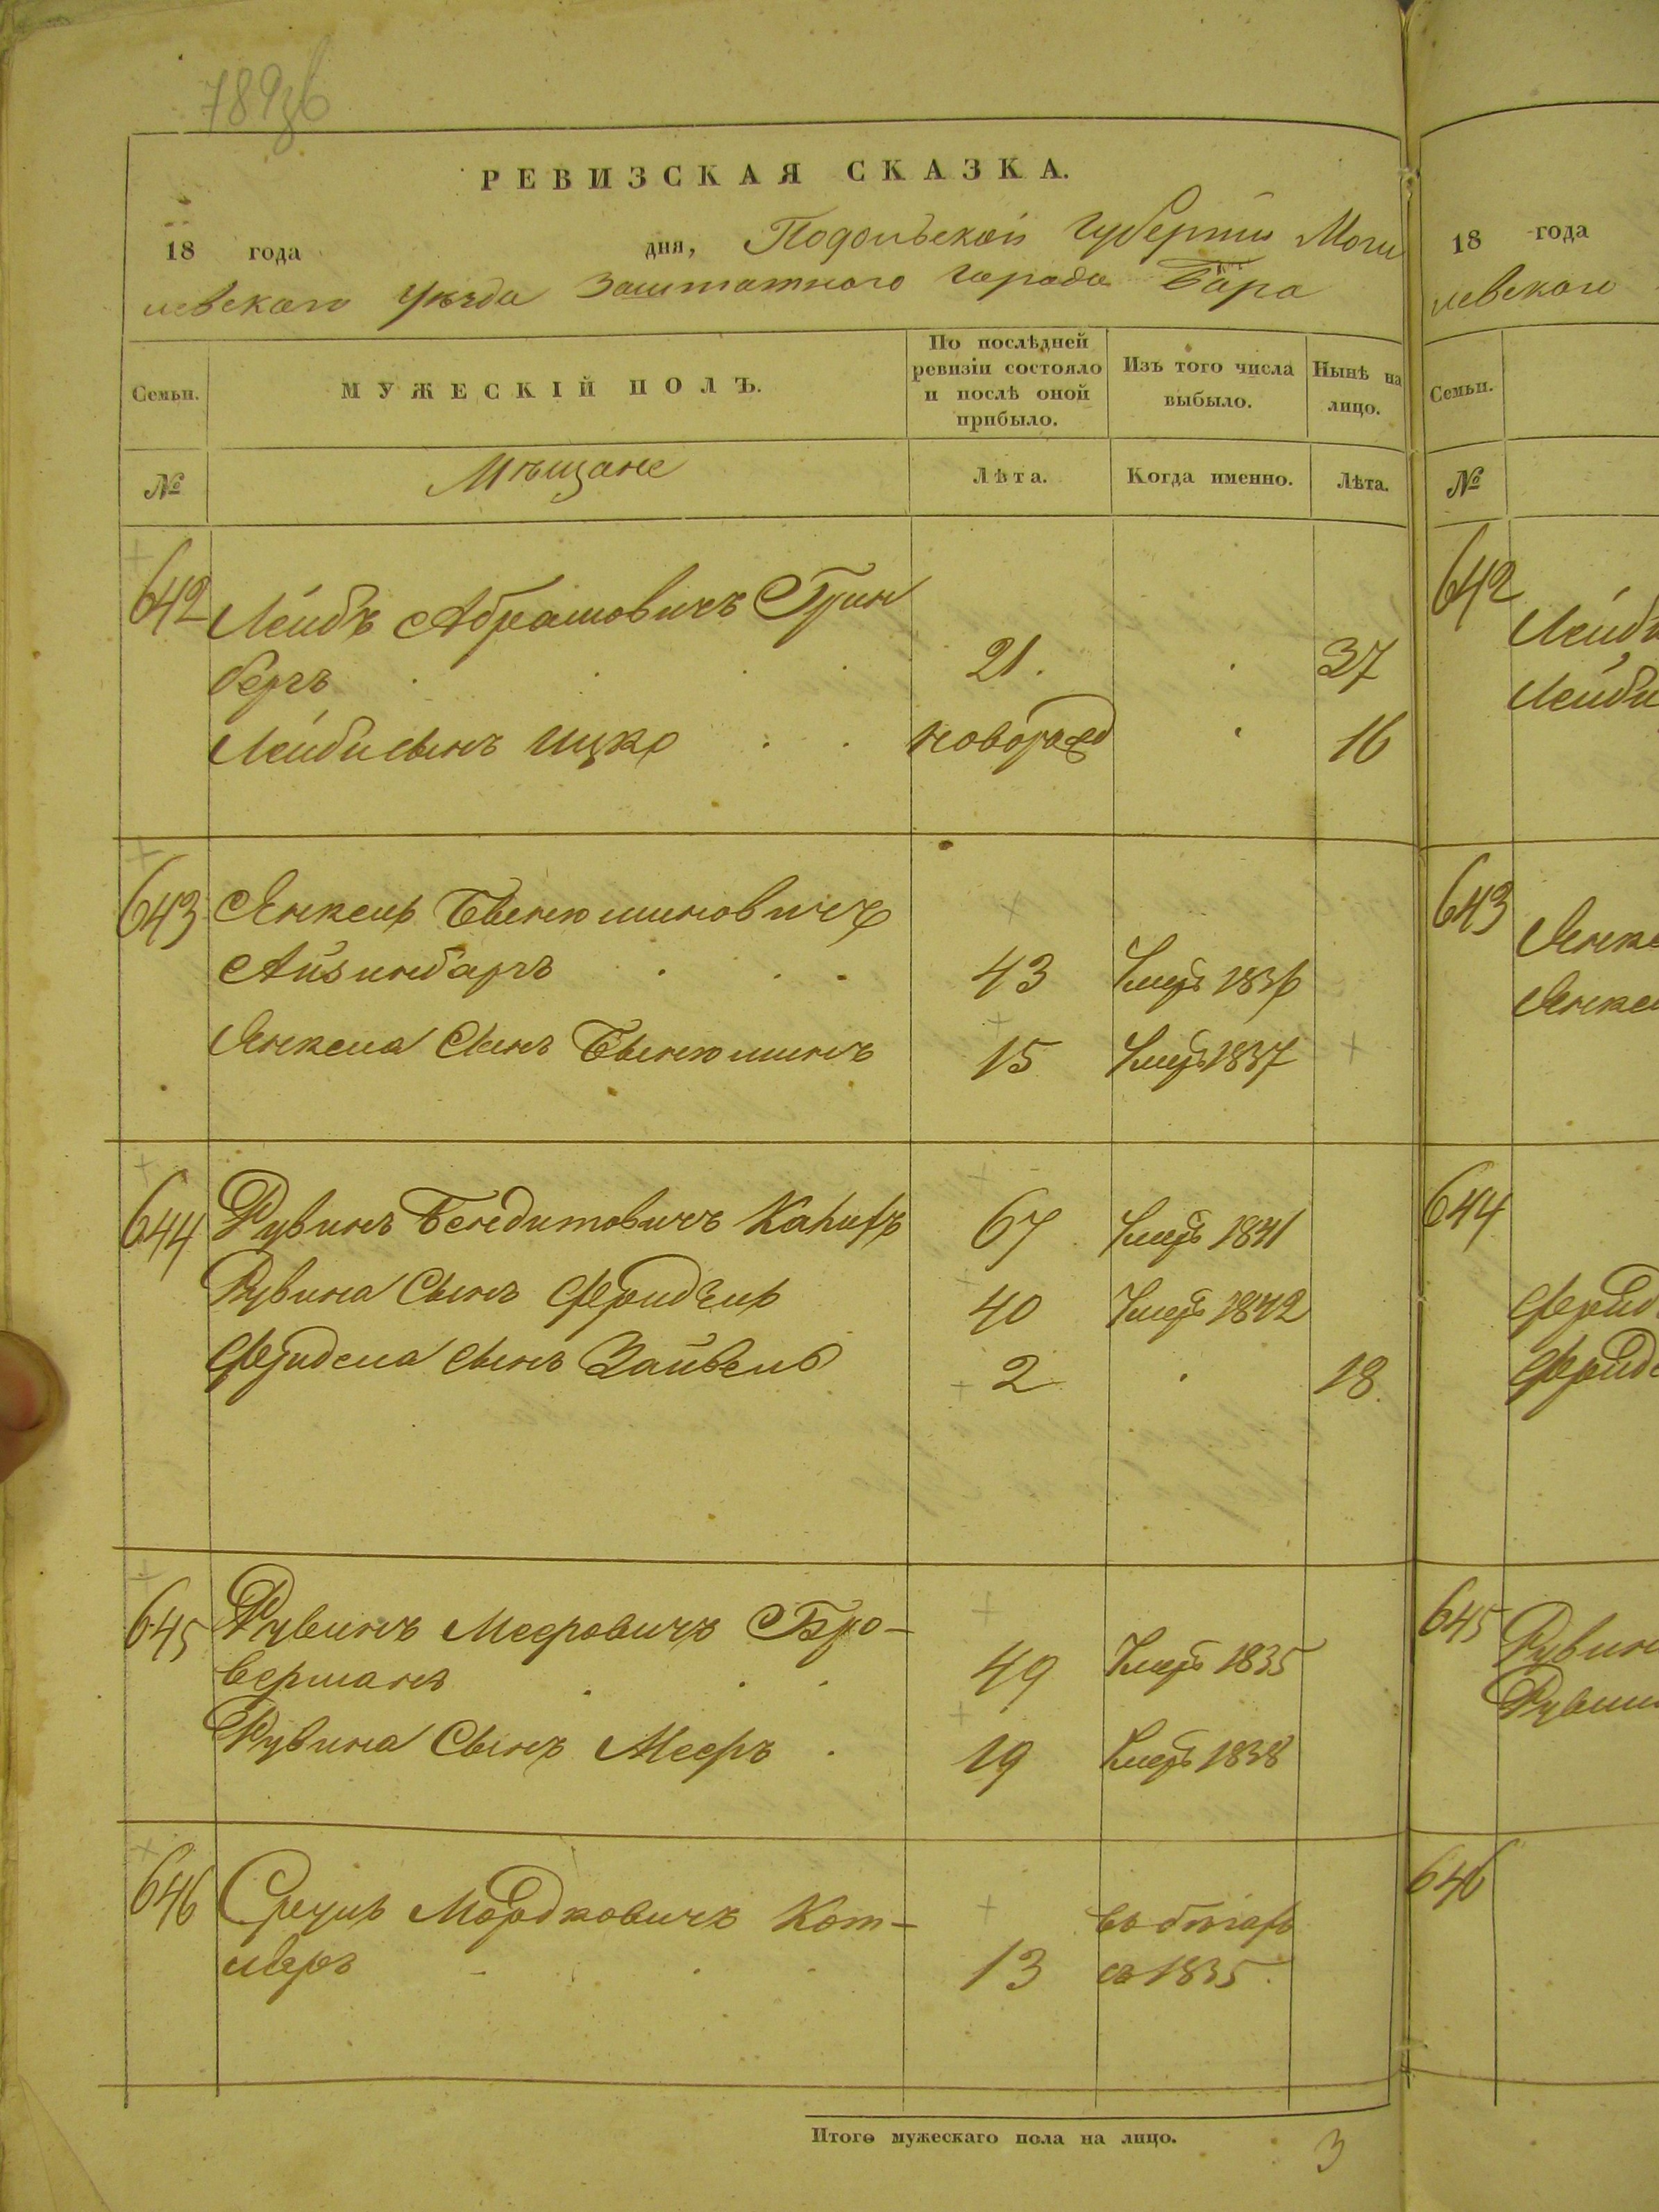 789зв
РЕВИЗСКАЯ СКАЗКА.
18 года дня, Подольской Губернии Моги
левского Уѣзда Заштатного Города Бара
Семьи.
МУЖЕСКІЙ ПОЛЪ.
По послѣдней
ревизіи состояло
и послѣ оной
прибыло.
Изъ того числа
выбыло.
Нынѣ на
лицо.
№
Мѣщане
Лѣта.
Когда именно.
Лѣта.
642 Лейбъ Абрамовичъ Грин
бергъ 21. 37
Лейби сынъ Ицко новорожд 16
643 Янкель Беньюминовичъ
Айзинбаргъ 43 Умеръ 1836
Янкеля Сынъ Беньюминъ 15 Умеръ 1837
644 Рувинъ Бендитовичъ 67 Умеръ 1841
Рувина Сынъ Фридель 40 Умеръ 1842
Фриделя сынъ Зайвель 2 18.
645 Рувинъ Мееровичъ Бро-
верманъ 49 Умеръ 1835
Рувина Сынъ Мееръ 19 Умеръ 1838
646 Сруль Мордковичъ Кот-
ляръ 13 въ бѣгахъ
съ 1835.
Итого мужескаго пола на лицо. 3
18 года
левского
Семьи.
№
642
643
644
645
646